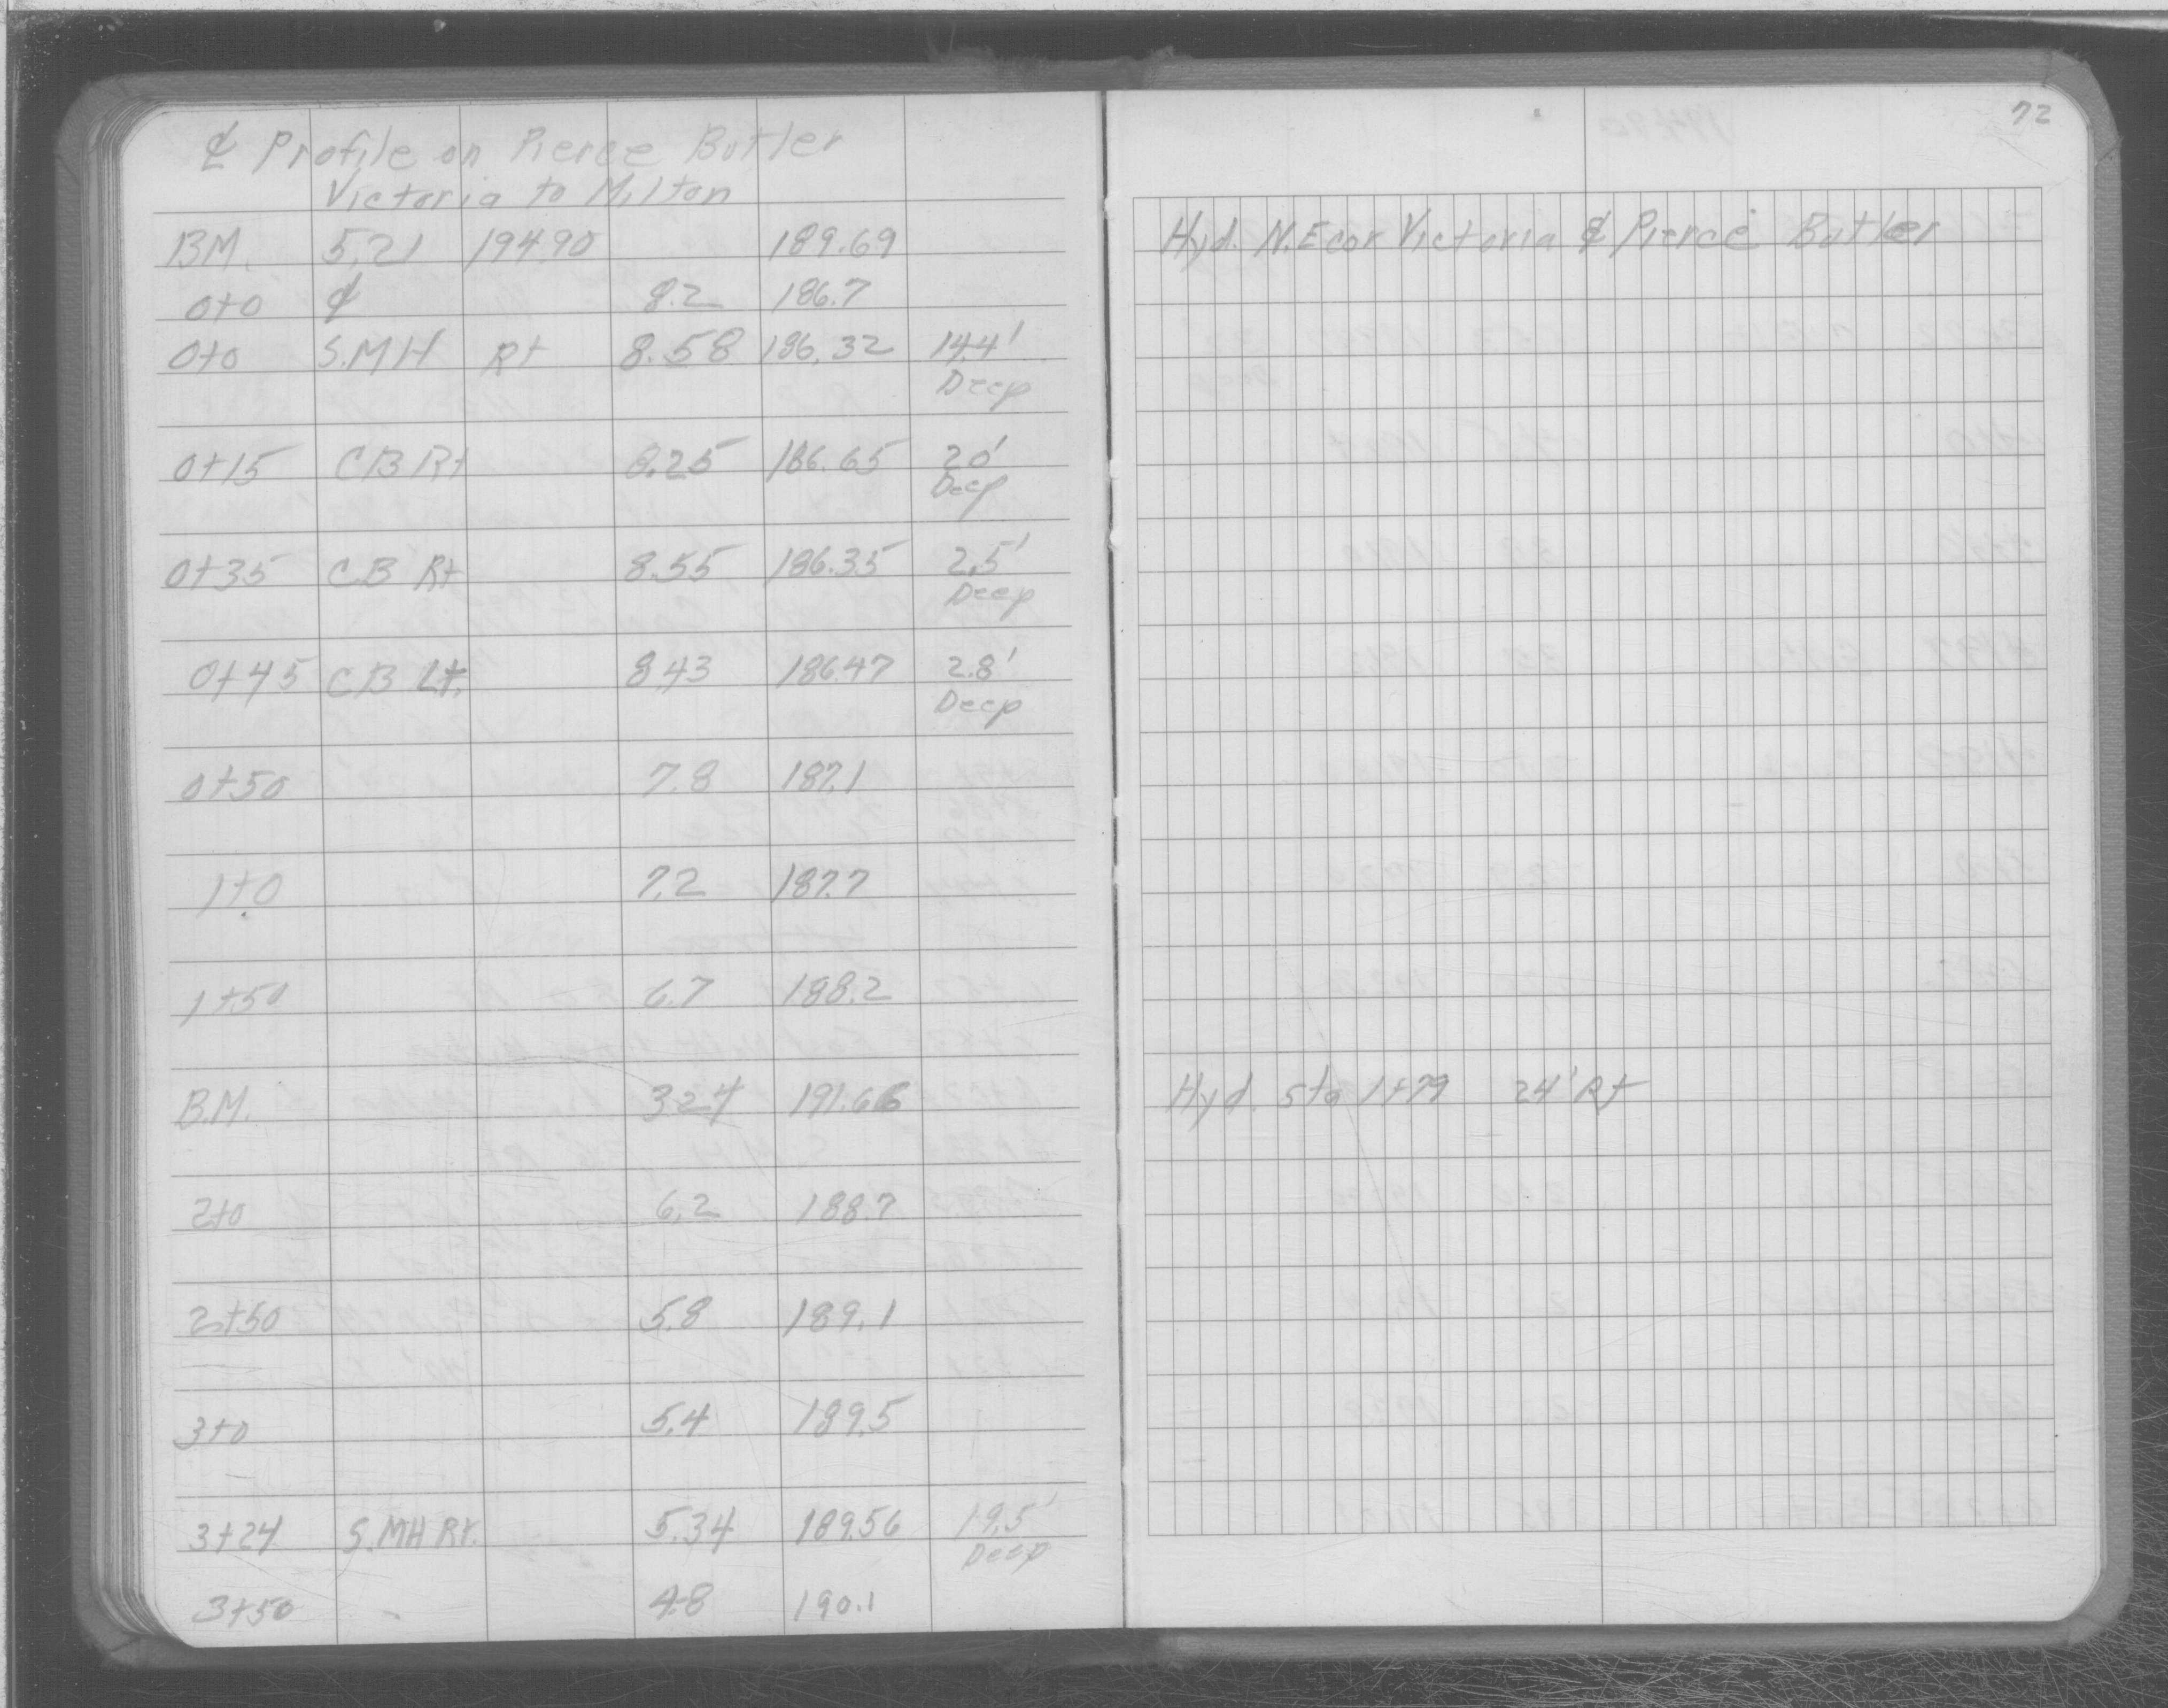 72
℄ Profile on Pierce Butler
Victoria to Milton
BM. 5.21 194.90 189.69 Hyd. N.E cor Victoria & Pierce Butler
0+0 ℄ 8.2 186.7
0+0 S.MH Rt 8.58 186.32 14.4'
Deep
0+15 CB Rt 8.25 186.65 2.0'
Deep
0+35 CB Rt 8.55 186.35 2.5'
Deep
0+45 CB Lt. 8.43 186.47 2.8'
Deep
0+50 7.8 187.1
1+0 7.2 187.7
1+50 6.7 188.2
B.M. 3.24 191.66 Hyd. Sta 1+79 24' Rt
2+0 6.2 188.7
2+50 5.8 189.1
3+0 5.4 189.5
3+24 S.MH Rt. 5.34 189.56 19.5'
Deep
3+50 4.8 190.1